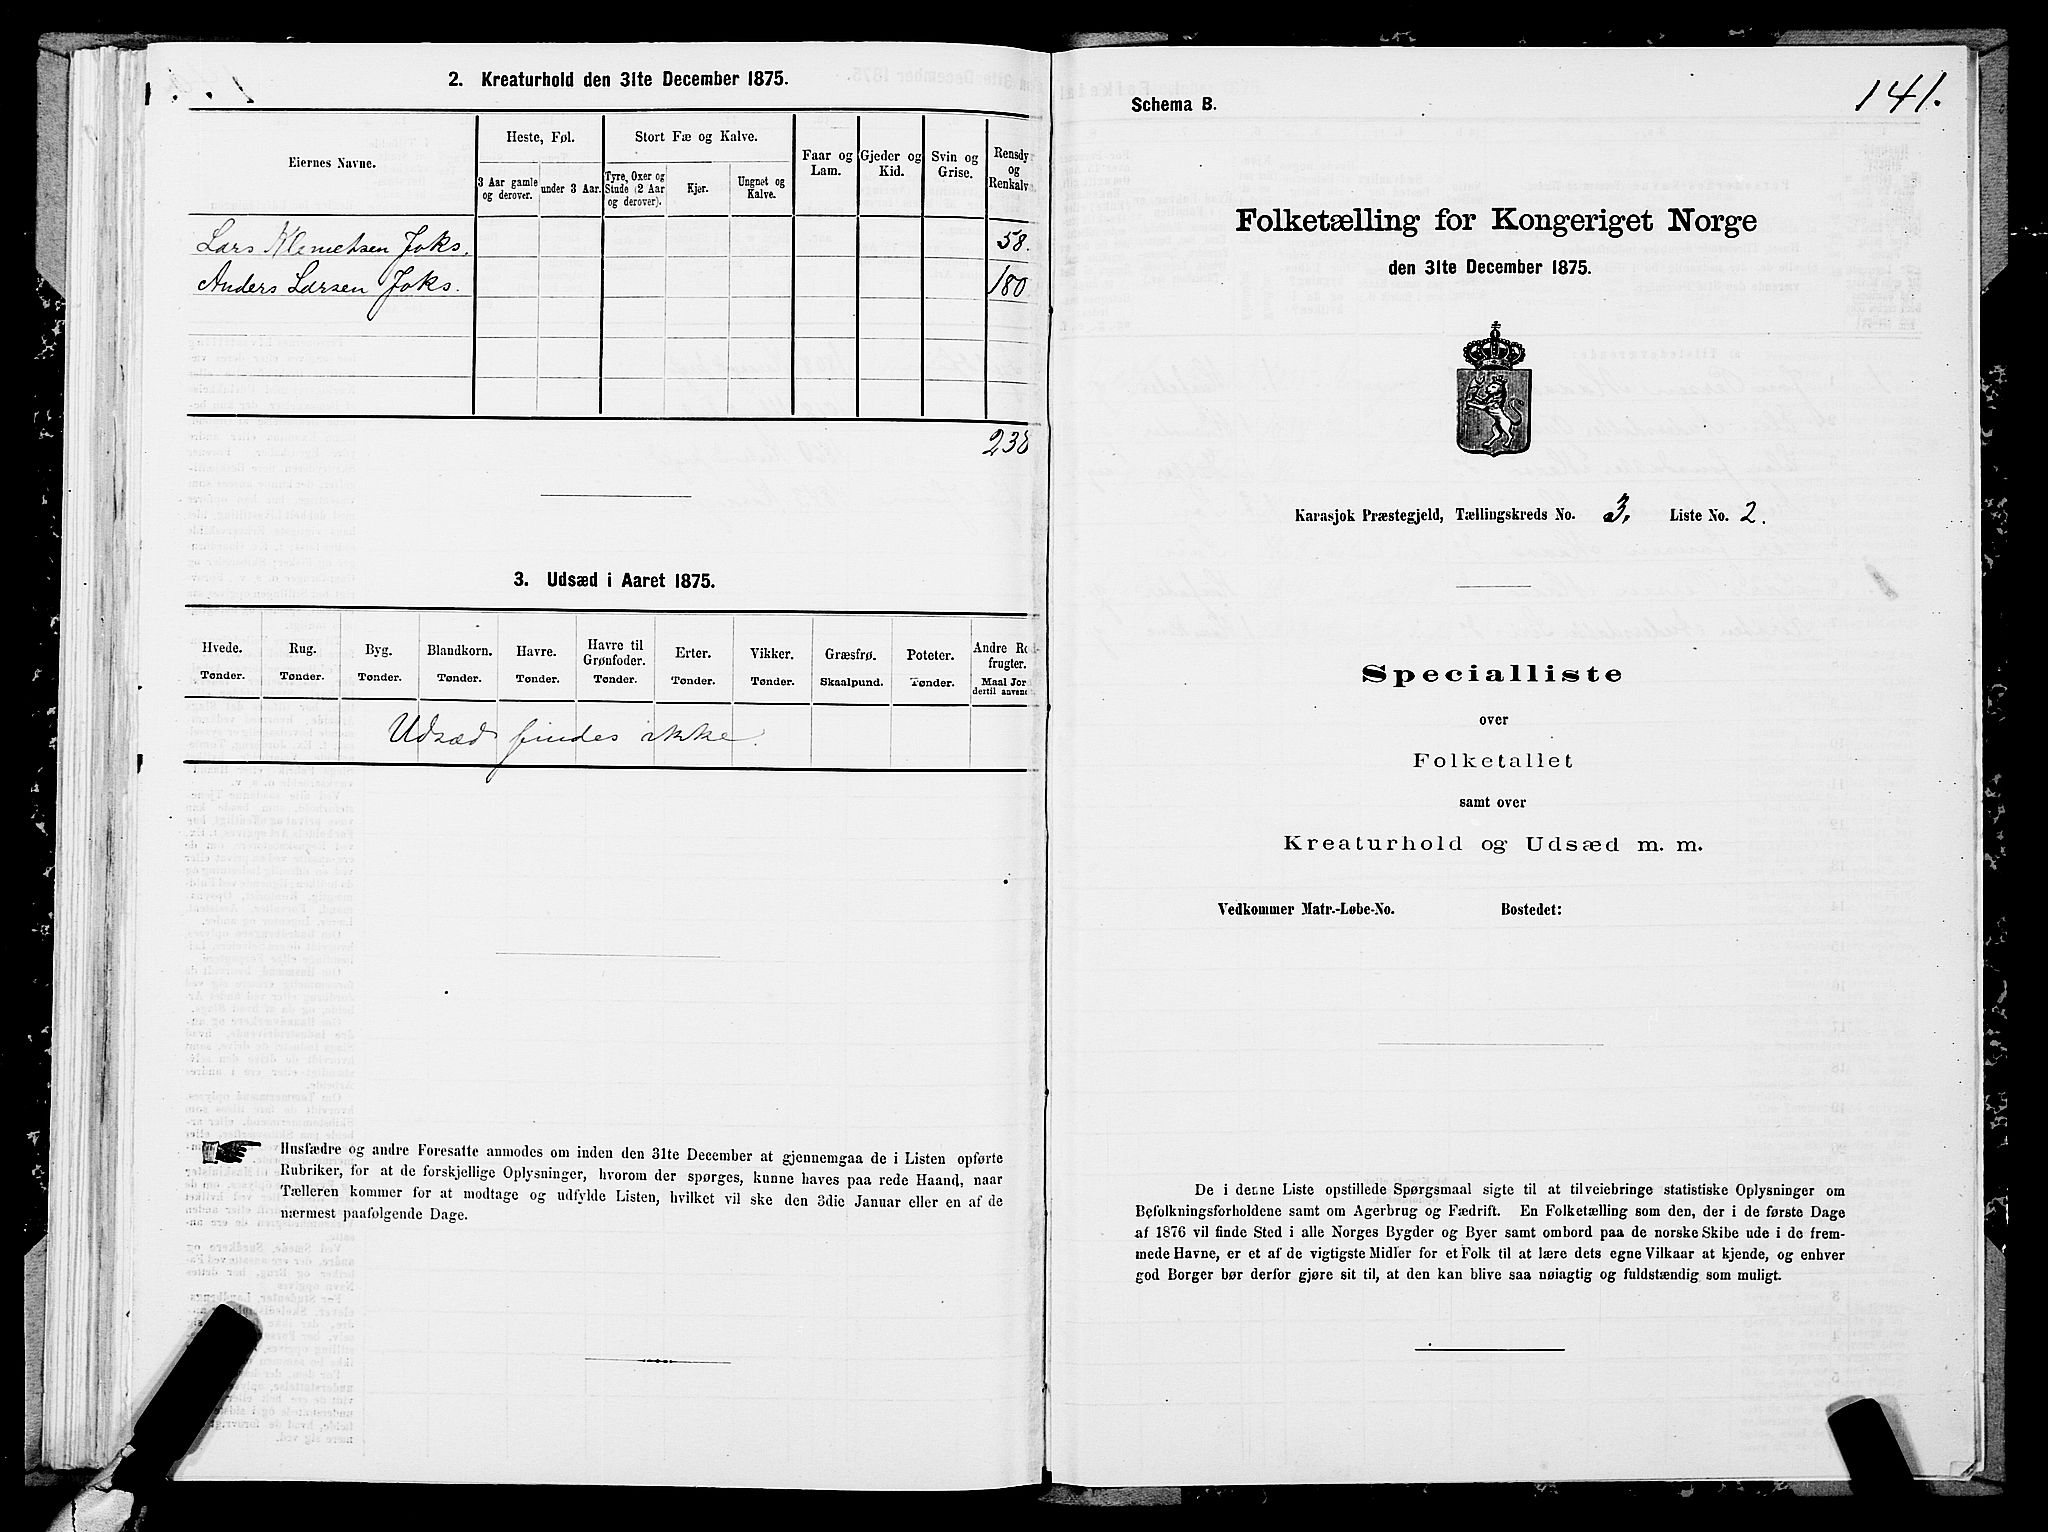 2. Kreaturhold den 31te December 1875.
Eiernes Navne.
Heste, Føl.
Stort Fæ og Kalve.
Faar og
Lam.
Gjeder og
Kid.
Svin og
Grise.
Rensdy
og
Renkalv
3 Aar gamle
og derover.
under 3 Aar.
Tyre, Oxer og
Stude (2 Aar
og derover).
Kjør.
Ungnet og
Kalve.
Lars Klemetsen Joks. 58.
Anders Larsen Joks. 180
238
3. Udsæd i Aaret 1875.
Hvede. Rug. Byg. Blandkorn. Havre. Havre til Grønfoder. Erter. Vikker. Græsfrø. Poteter. Andre Rod-
frugter.
Tønder. Tønder. Tønder. Tønder. Tønder. Tønder. Tønder. Tønder. Skaalpund. Tønder. Maal Jor
dertil anvend
Udsæd findes ikke.
Husfædre og andre Foresatte anmodes om inden den 31te December at gjennemgaa de i Listen opførte
Rubriker, for at de forskjellige Oplysninger, hvorom der spørges, kunne haves paa rede Haand, naar
Tælleren kommer for at modtage og udfylde Listen, hvilket vil ske den 3die Januar eller en af de
nærmest paafølgende Dage.
Schema B.
141.
Folketælling for Kongeriget Norge
den 31te December 1875.
Karasjok Præstegjeld, Tællingskreds No. 3. Liste No. 2.
Specialliste
over
Folketallet
samt over
Kreaturhold og Udsæd m. m.
Vedkommer Matr.-Løbe-No. Bostedet:
De i denne Liste opstillede Spørgsmaal sigte til at tilveiebringe statistiske Oplysninger om
Befolkningsforholdene samt om Agerbrug og Fædrift. En Folketælling som den, der i de første Dage
af 1876 vil finde Sted i alle Norges Bygder og Byer samt ombord paa de norske Skibe ude i de frem-
mede Havne, er et af de vigtigste Midler for et Folk til at lære dets egne Vilkaar at kjende, og enhver
god Borger bør derfor gjøre sit til, at den kan blive saa nøiagtig og fuldstændig som muligt.